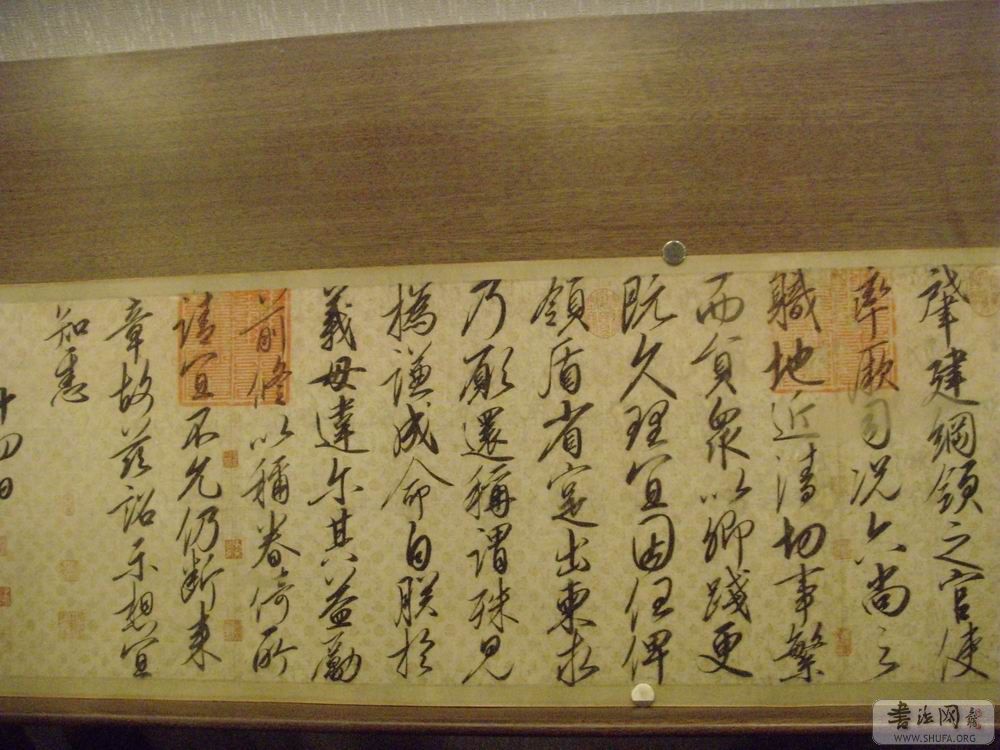 肇建綱領之官使
率厥司況六尚之
職地近清切事繁
而員衆以卿踐更
既久理宜因任俾
領盾省寔出柬求
乃願還稱謂殊見
撝謙成命自朕於
義毋違尔其益勵
前修以稱眷倚所
請宜不允仍斷來
章故茲詔示想宜
知悉
十四日
书法网
WWW.SHUFA.ORG